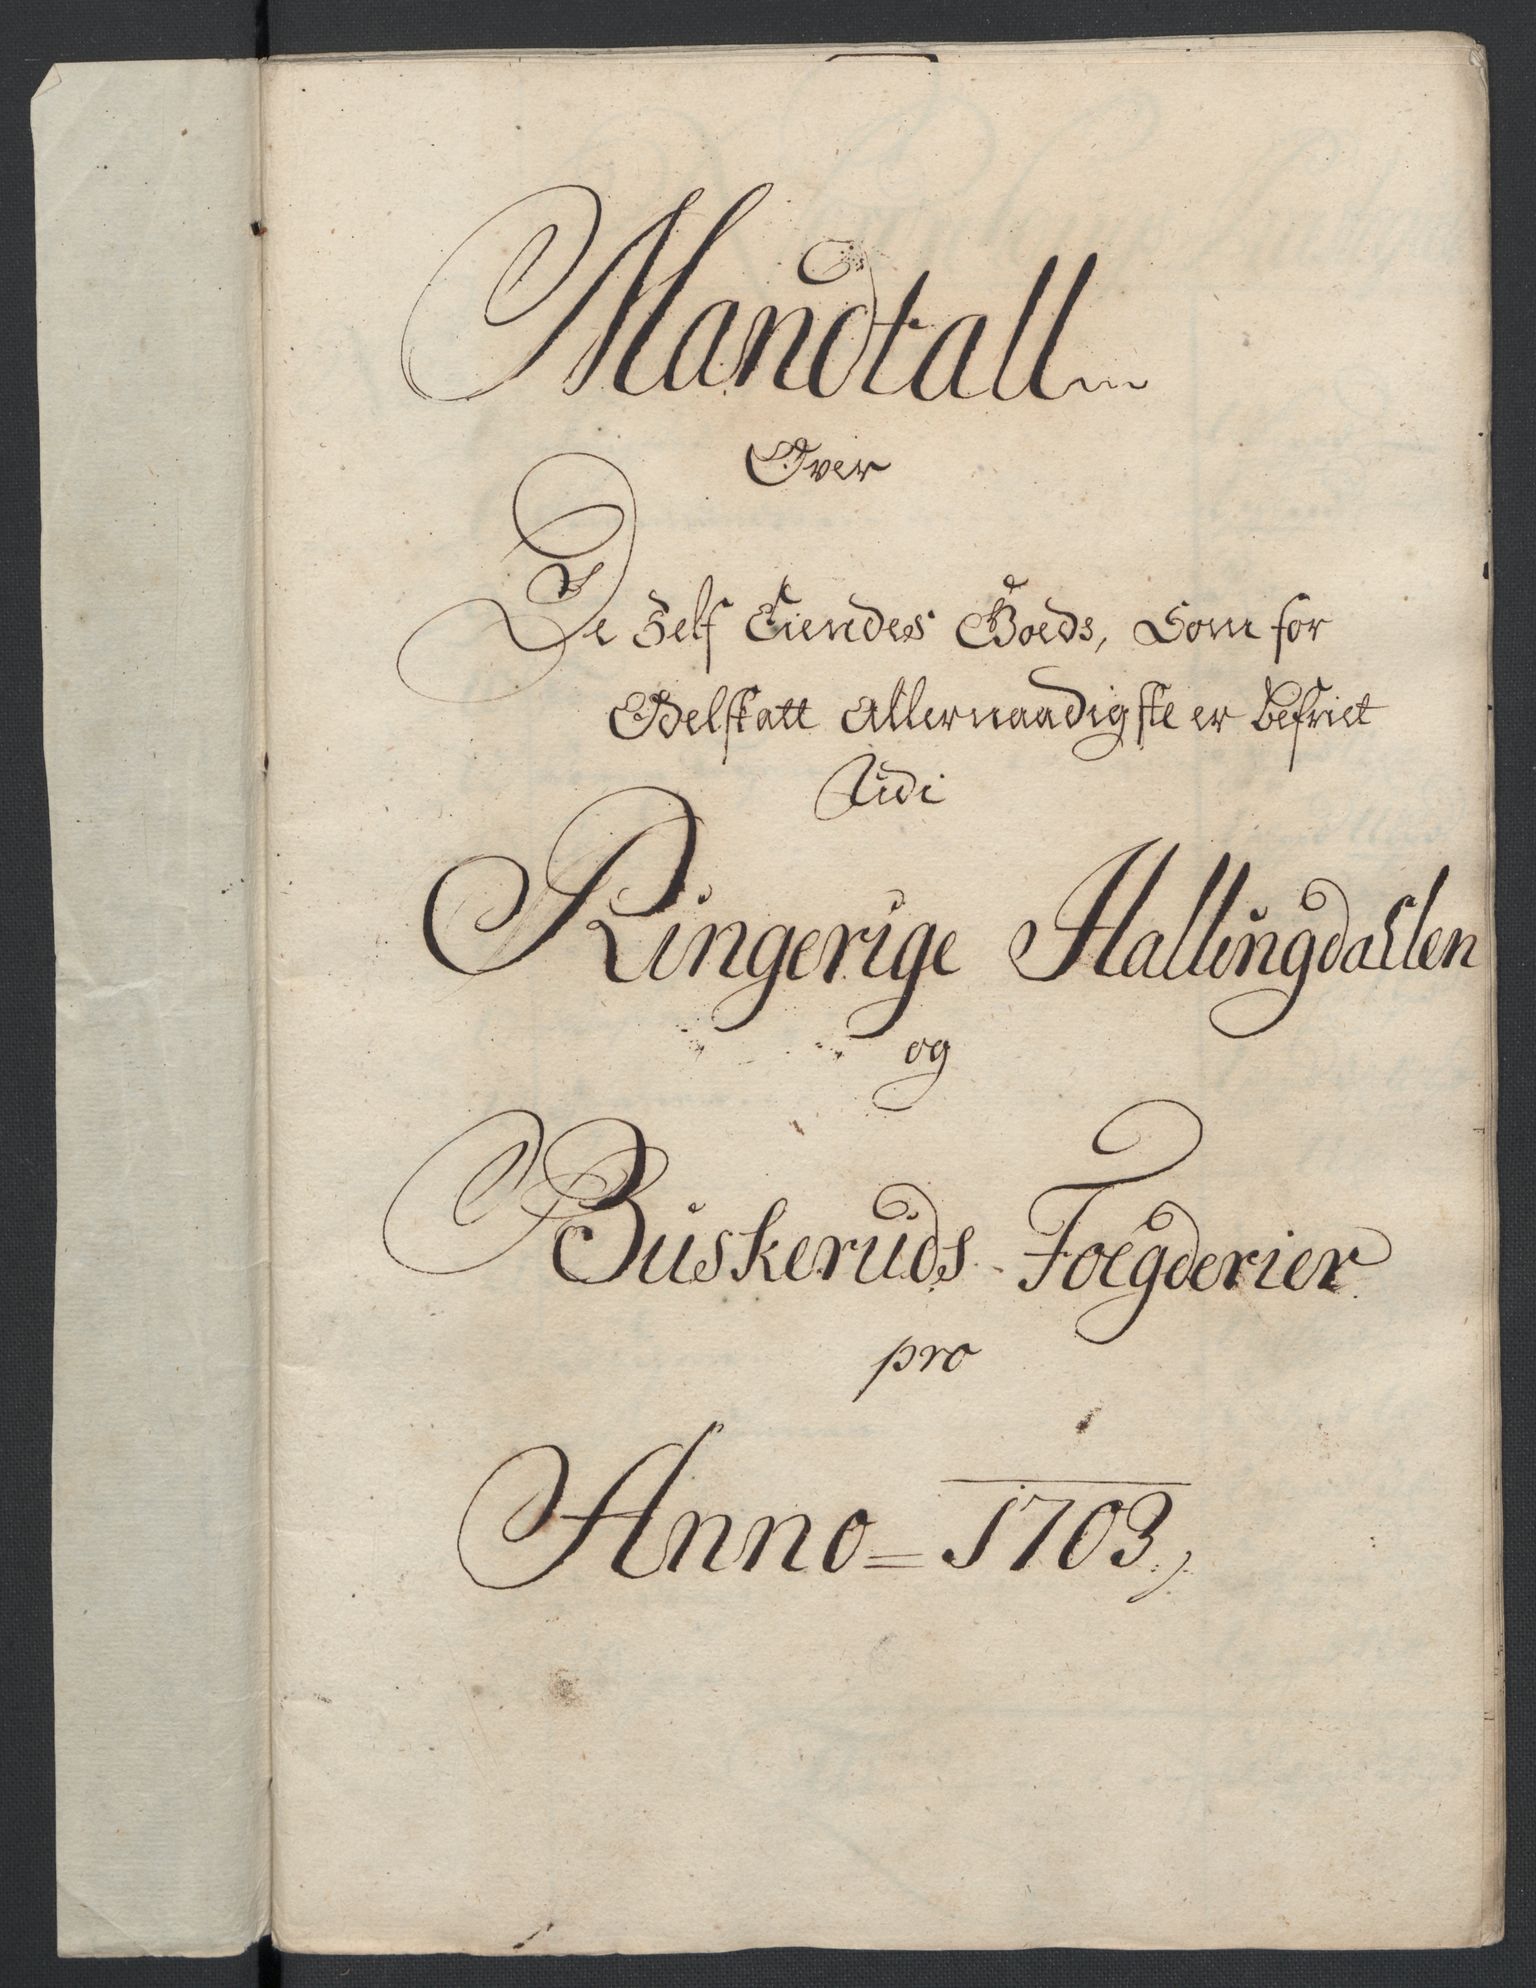 Mandtall
Over
De Self Eiendes Goeds, Som for
Odelskatt Allernaadigste er befriet
Udi
Ringerige Hallingdahlen
og
Buskeruds Foegderier
pro
Anno = 1703,